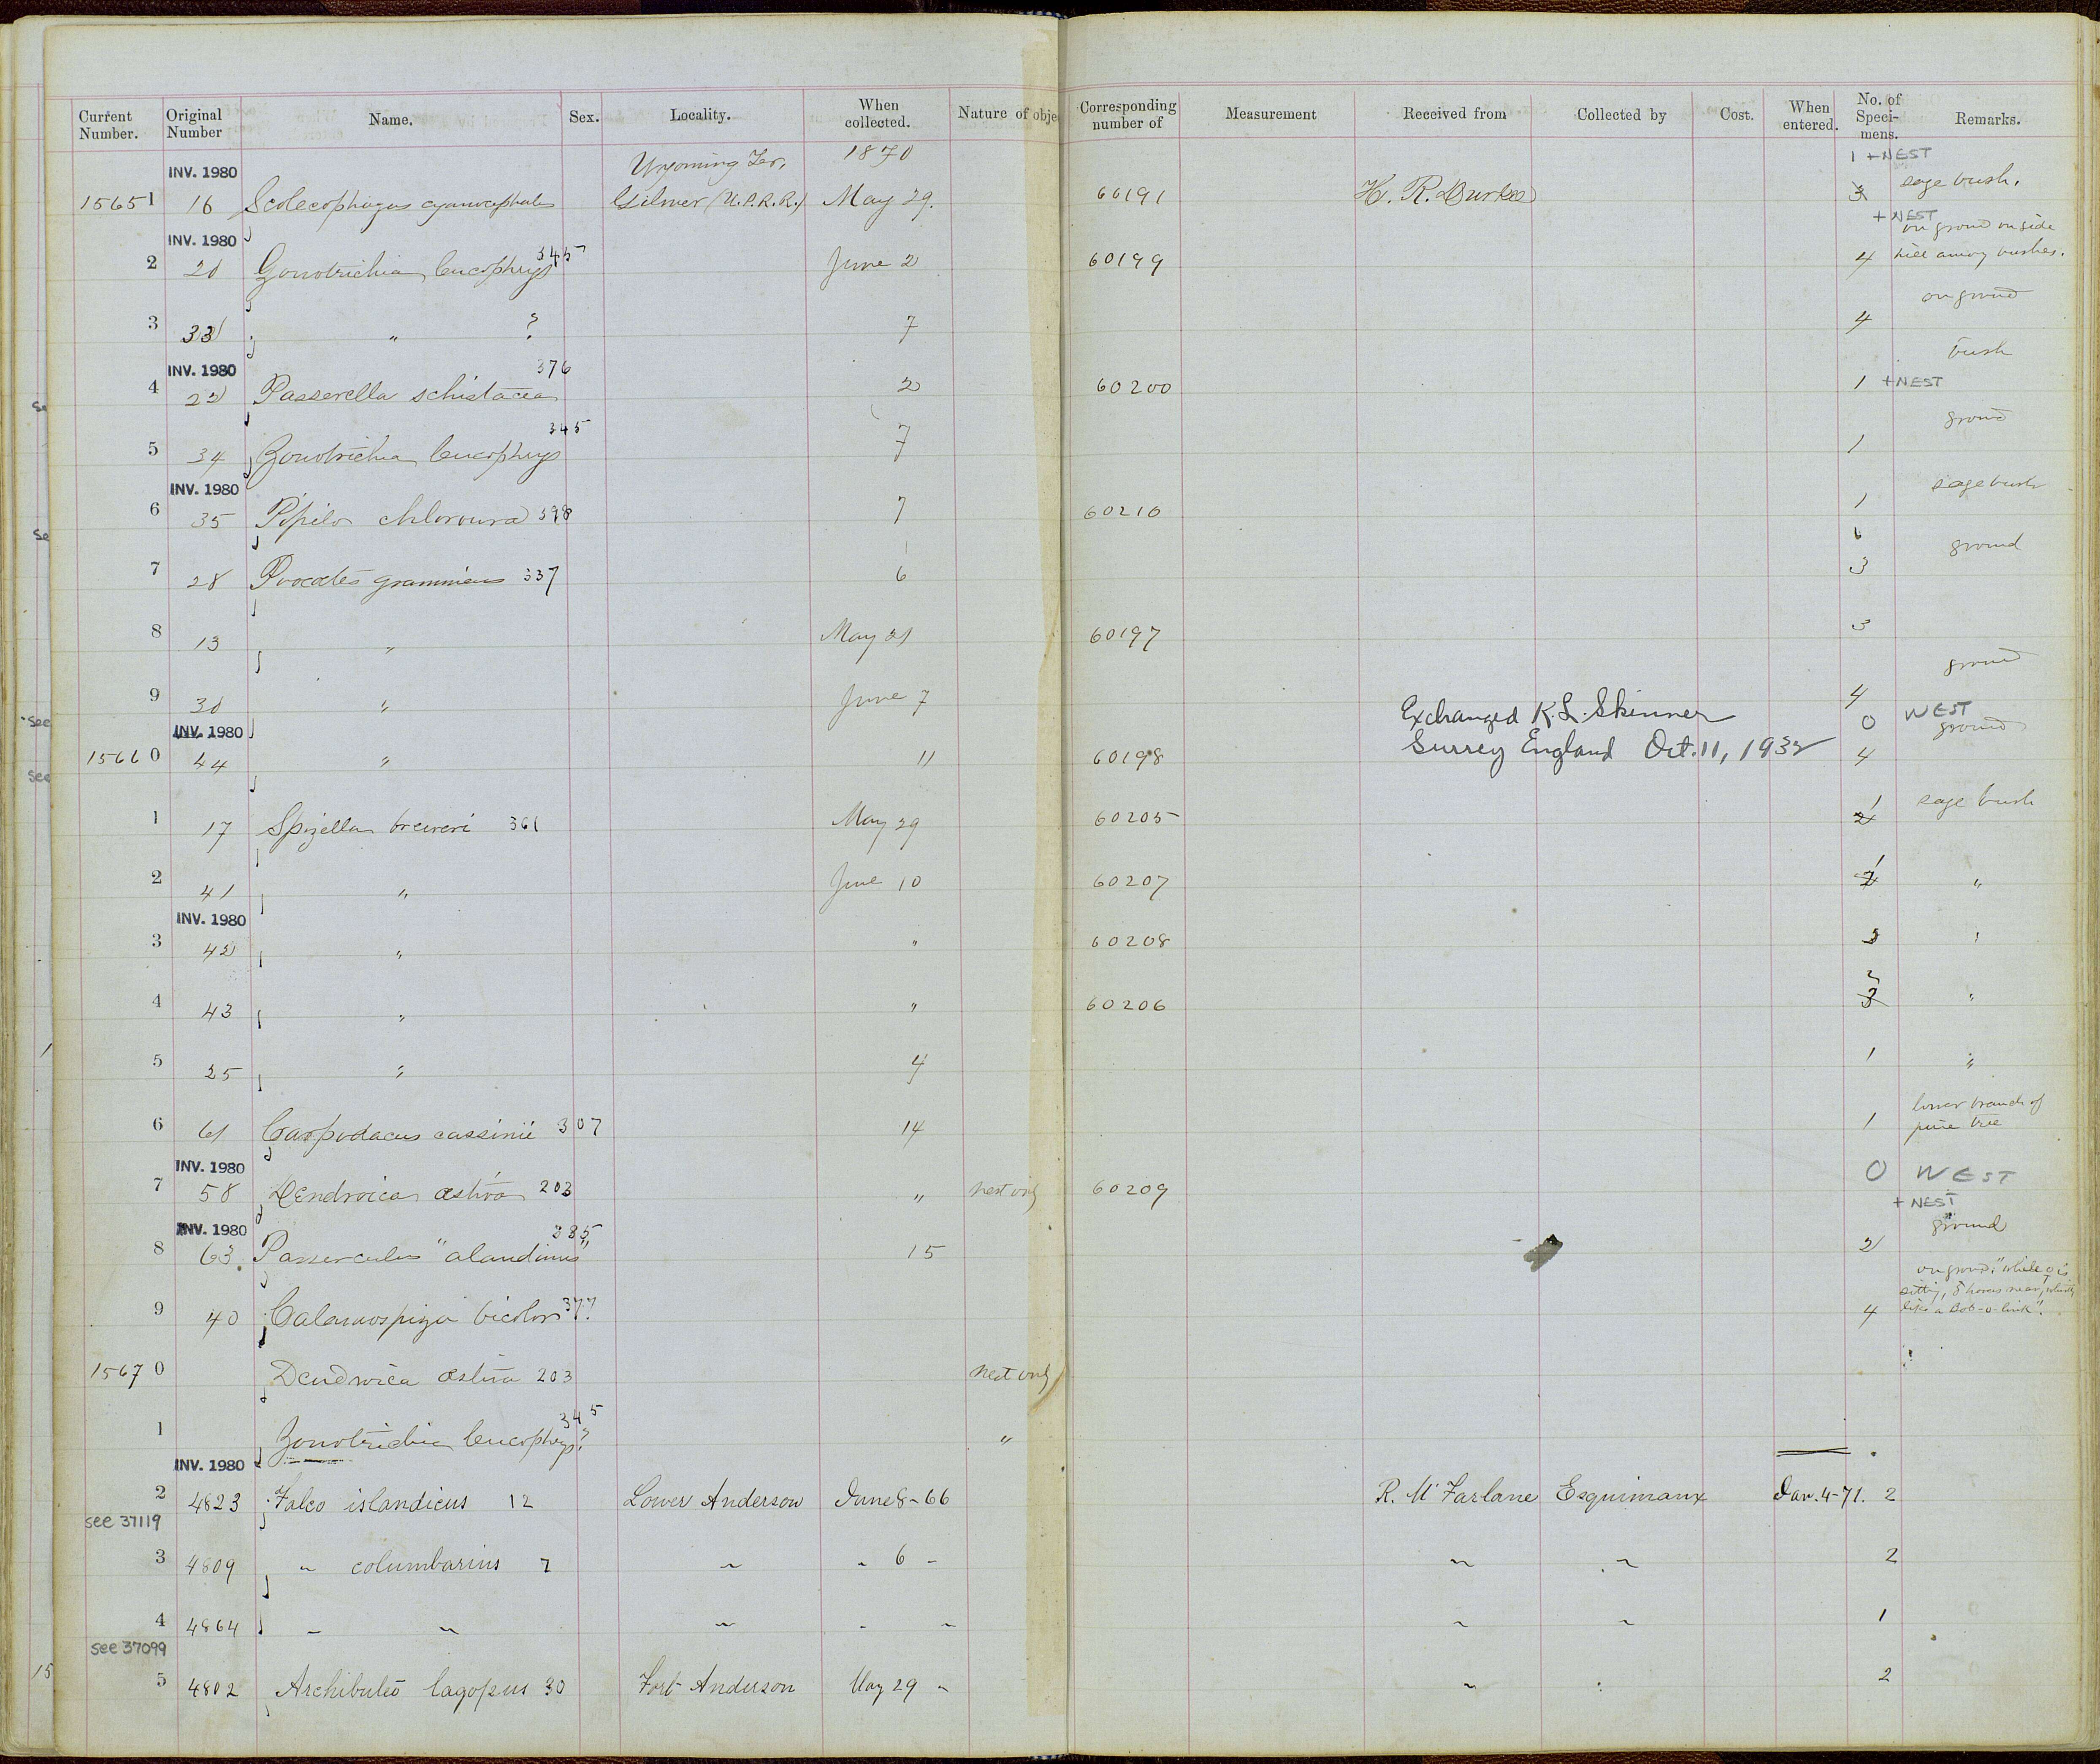 Current Number. Original Number Name. Sex. Locality. When collected. Nature of obje Corresponding number of Measurement Received from Collected by Cost. When entered. No. of Speci- mens. Remarks.
Wyoming Ter. 1870 1 + NEST
INV. 1980
15651 16 Scolecophagus cyanocephalus Gilmer (U.P.R.R.) May 29. 60191 H. R. Durkee 3 sage bush.
INV. 1980 + NEST
on ground on side
2 20 Zonotrichia leucophrys 345 June 2 60199 4 hill among bushes.
on ground
3 33 " ? 7 4
INV. 1980 bush
4 22 Passerella schistacea 376 2 60200 1 + NEST
ground
5 34 Zonotrichia leucophrys 345 7 1
INV. 1980 sage bush
6 35 Pipilo chlorura 398 7 60210 1
6 ground
7 28 Pooecetes gramineus 337 6 3
8 13 " May 21 60197 3
ground
9 30 " June 7 4
Exchanged K. L. Skinner 0 NEST
INV. 1980 ground
15660 44 " 11 60198 Surrey England Oct. 11, 1932 4
1 17 Spizella breweri 361 May 29 60205 1 2 sage bush
2 41 " June 10 60207 1 2 "
INV. 1980
3 42 " " 60208 3 "
4 43 " " 60206 3 "
5 25 " 4 1 "
lower branch of
6 61 Carpodacus cassinii 307 14 1 pine tree
INV. 1980 0 NEST
7 58 Dendroica æstiva 203 " nest only 60209
+ NEST
INV. 1980 ground
8 63. Passerculus "alaudinus" 335 15 2
on ground. "while ♀ is
sitting, ♂ hovers near,
9 40 Calamospiza bicolor 377. 4 like a Bob-o-link".
15670 Dendroica æstiva 203 nest only
1 Zonotrichia leucophrys? 345 "
INV. 1980
2 4823 Falco islandicus 12 Lower Anderson June 8-66 R. McFarlane Esquimaux Jan. 4-71. 2
see 37119
3 4809 " columbarius 7 " " 6 " " " 2
4 4864 " " " " " " " 1
see 37099
5 4802 Archibuteo lagopus 30 Fort Anderson May 29 " " " 2